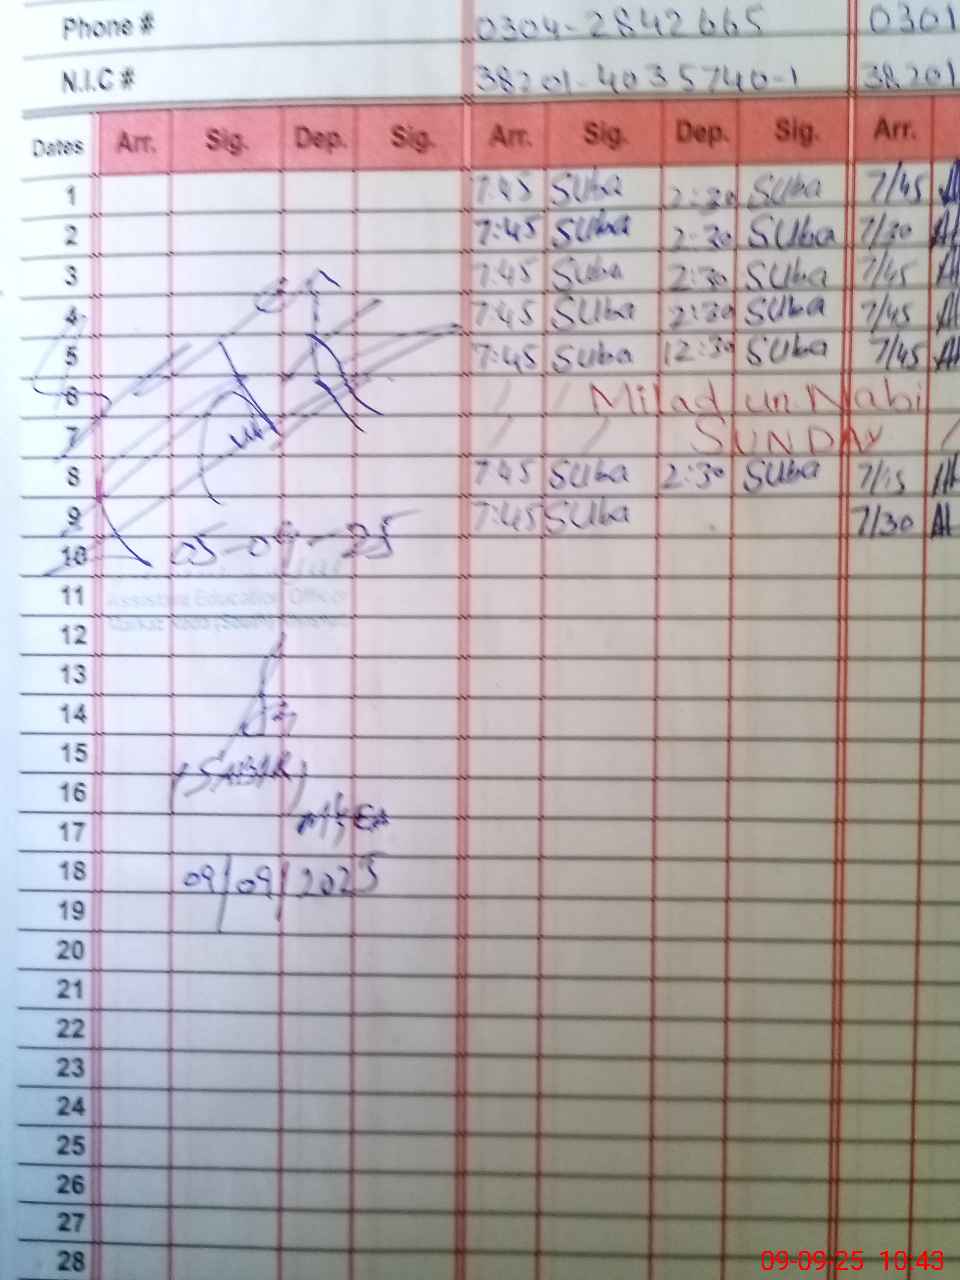 Phone # 0304-2842665 0301
N.I.C # 38201-4035740-1 38201
Dates Arr. Sig. Dep. Sig. Arr. Sig. Dep. Sig. Arr.
1 7:45 Suba 2:30 Suba 7/45 Al
2 7:45 Suba 2:30 Suba 7/30 Al
3 7:45 Suba 2:30 Suba 7/45 Al
4 7:45 Suba 2:30 Suba 7/45 Al
5 7:45 Suba 12:30 Suba 7/45 Al
6 Milad un Nabi
7 SUNDAY
8 7:45 Suba 2:30 Suba 7/15 Al
9 7:45 Suba 7/30 Al
10 05-09-25
11 Assistant Education Officer
12
13
14
15
16 (SABIR)
17
18 09/09/2025
19
20
21
22
23
24
25
26
27
28
09-09-25 10:43